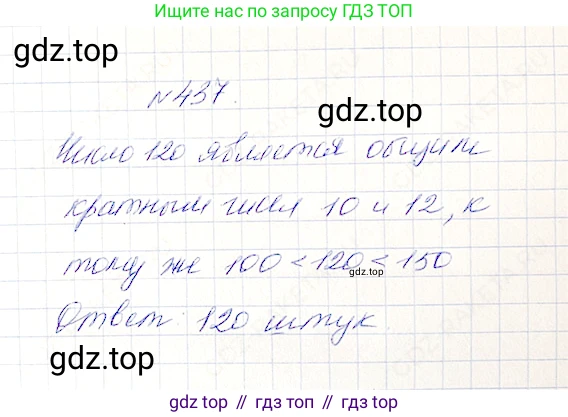 Ищите нас по запросу ГДЗ ТОП
gdz.top
№437.
gdz.top
Число 120 является общим
кратным чисел 10 и 12, к
тому же 100 < 120 < 150
gdz.top
Ответ: 120 штук.
gdz.top
gdz.top // гдз топ // gdz.top